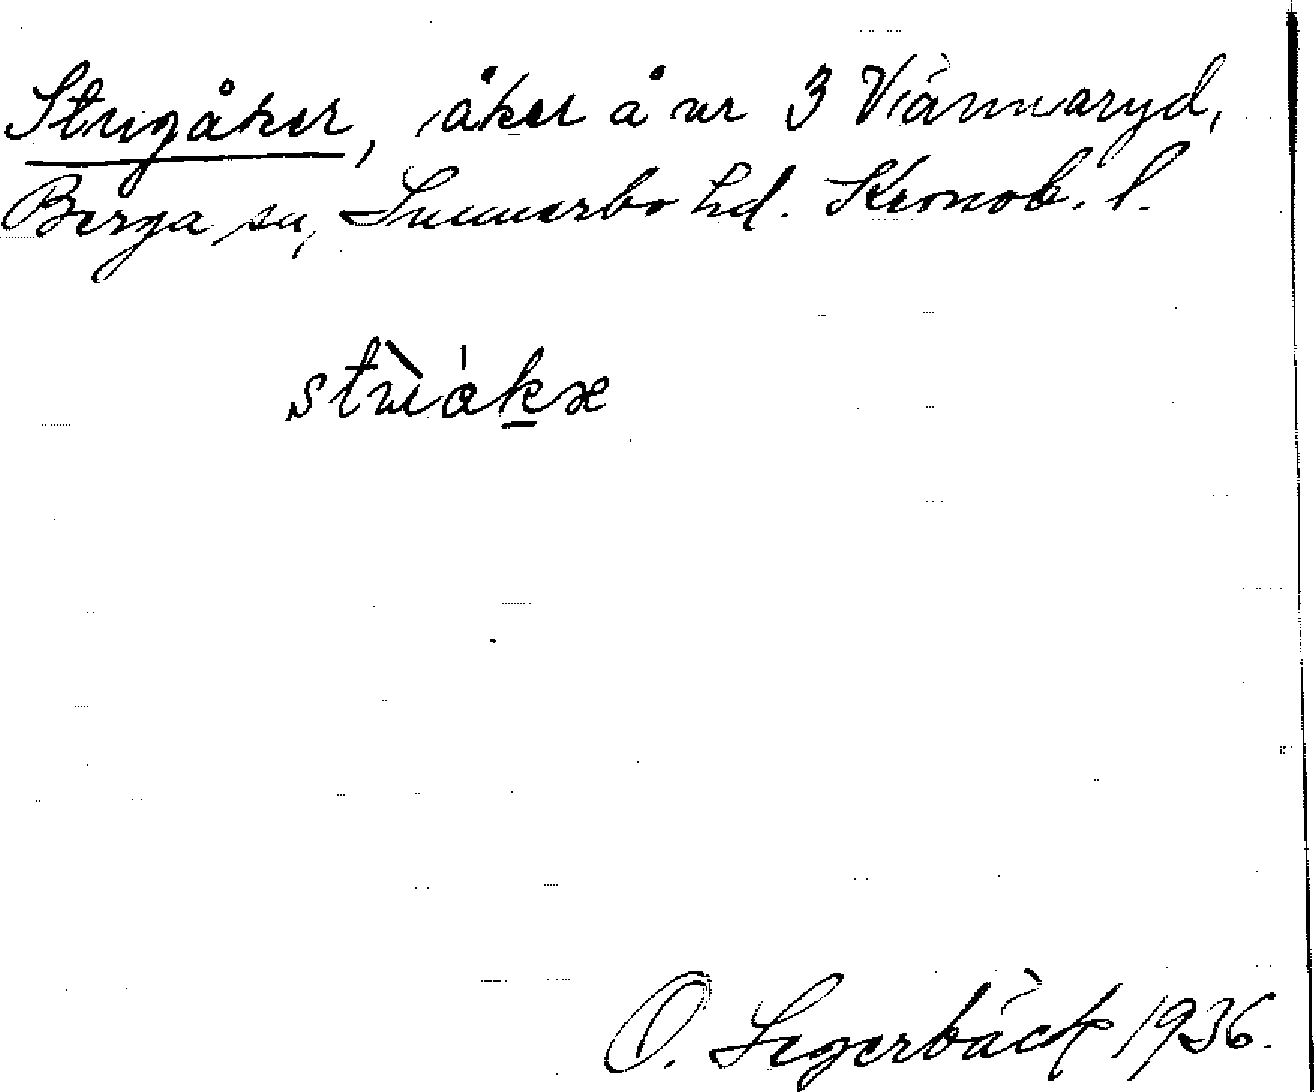 Strigåker, åker å nr 3 Vännaryd,
Berga sn, Sunnerbo hd. Kronob. l.
O. Segerbäck 1936.